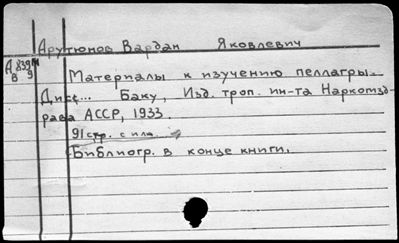 Арутюнов Вардан Яковлевич
А 839
в 9
Материалы к изучению пеллагры.
Дисс... Баку, Изд. троп. ин-та Наркомзд-
рава АССР, 1933.
91 стр. с илл.
Библиогр. в конце книги.